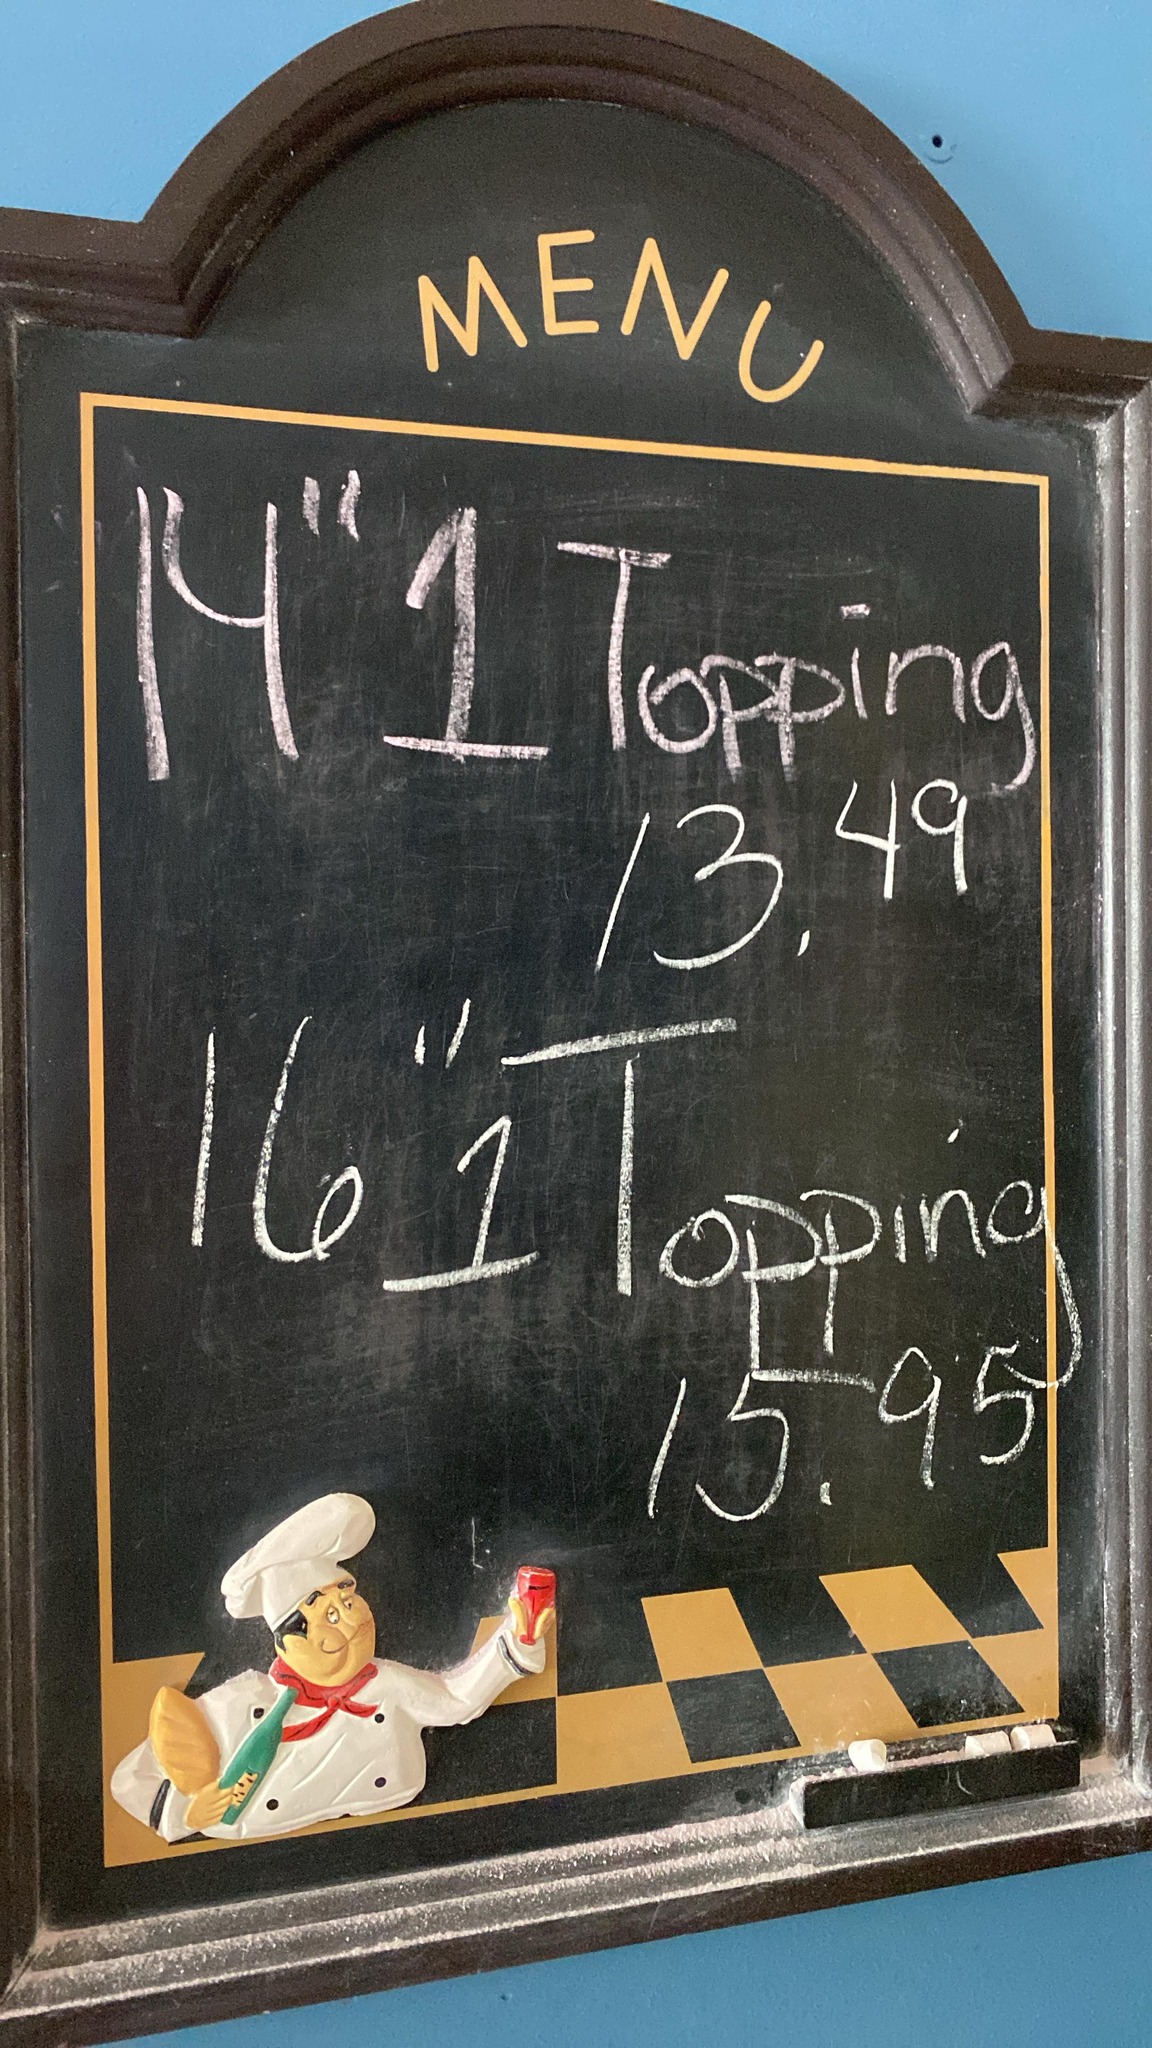 MENU
14" 1 Topping
13.49
16" 1 Topping
15.95